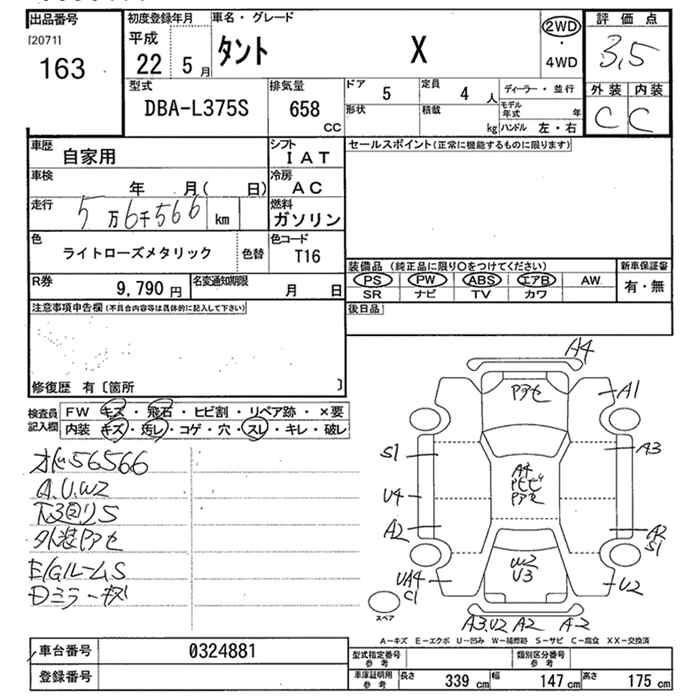 出品番号 初度登録年月 車名・グレード 評価点
[2071]
163
平成
22 5月
タント X
2WD
・
4WD
3.5
型式 排気量 ドア 定員 ディーラー・並行 外装 内装
DBA-L375S 658 CC
5 4人
形状 積載 kg モデル年式 年
ハンドル 左・右
C C
車歴 自家用 シフト IAT
セールスポイント(正常に機能するものに限ります)
車検 年 月( 日) 冷房 AC
走行 5万6千566 km 燃料 ガソリン
色 ライトローズメタリック 色替 色コード T16
装備品 (純正品に限り○をつけてください) 新車保証書
PS PW ABS エアB AW 有・無
SR ナビ TV カワ
R券 9,790円 名変通知期限 月 日
後日品
注意事項申告欄(不具合内容等は具体的に記入して下さい)
修復歴 有〔箇所 〕
検査員 FW キズ・飛石・ヒビ割・リペア跡・×要
記入欄 内装 キズ・汚レ・コゲ・穴・スレ・キレ・破レ
オドメ56566
A.U.W2
下廻りS
外装アセ
E/GルームS
Dミラーキズ
A4
アセ
A1
S1
A3
A4
トビヒビ
アセ
U4
A2
A2
S1
UA4
C1
W2
U3
U2
スペア
A3.U2 A2 A-2
A-キズ E-エクボ U-凹み W-補修跡 S-サビ C-腐食 XX-交換済
車台番号 0324881
型式指定番号 参考 類別区分番号 参考
登録番号
車庫証明用 参考 長さ 339cm 幅 147cm 高さ 175cm